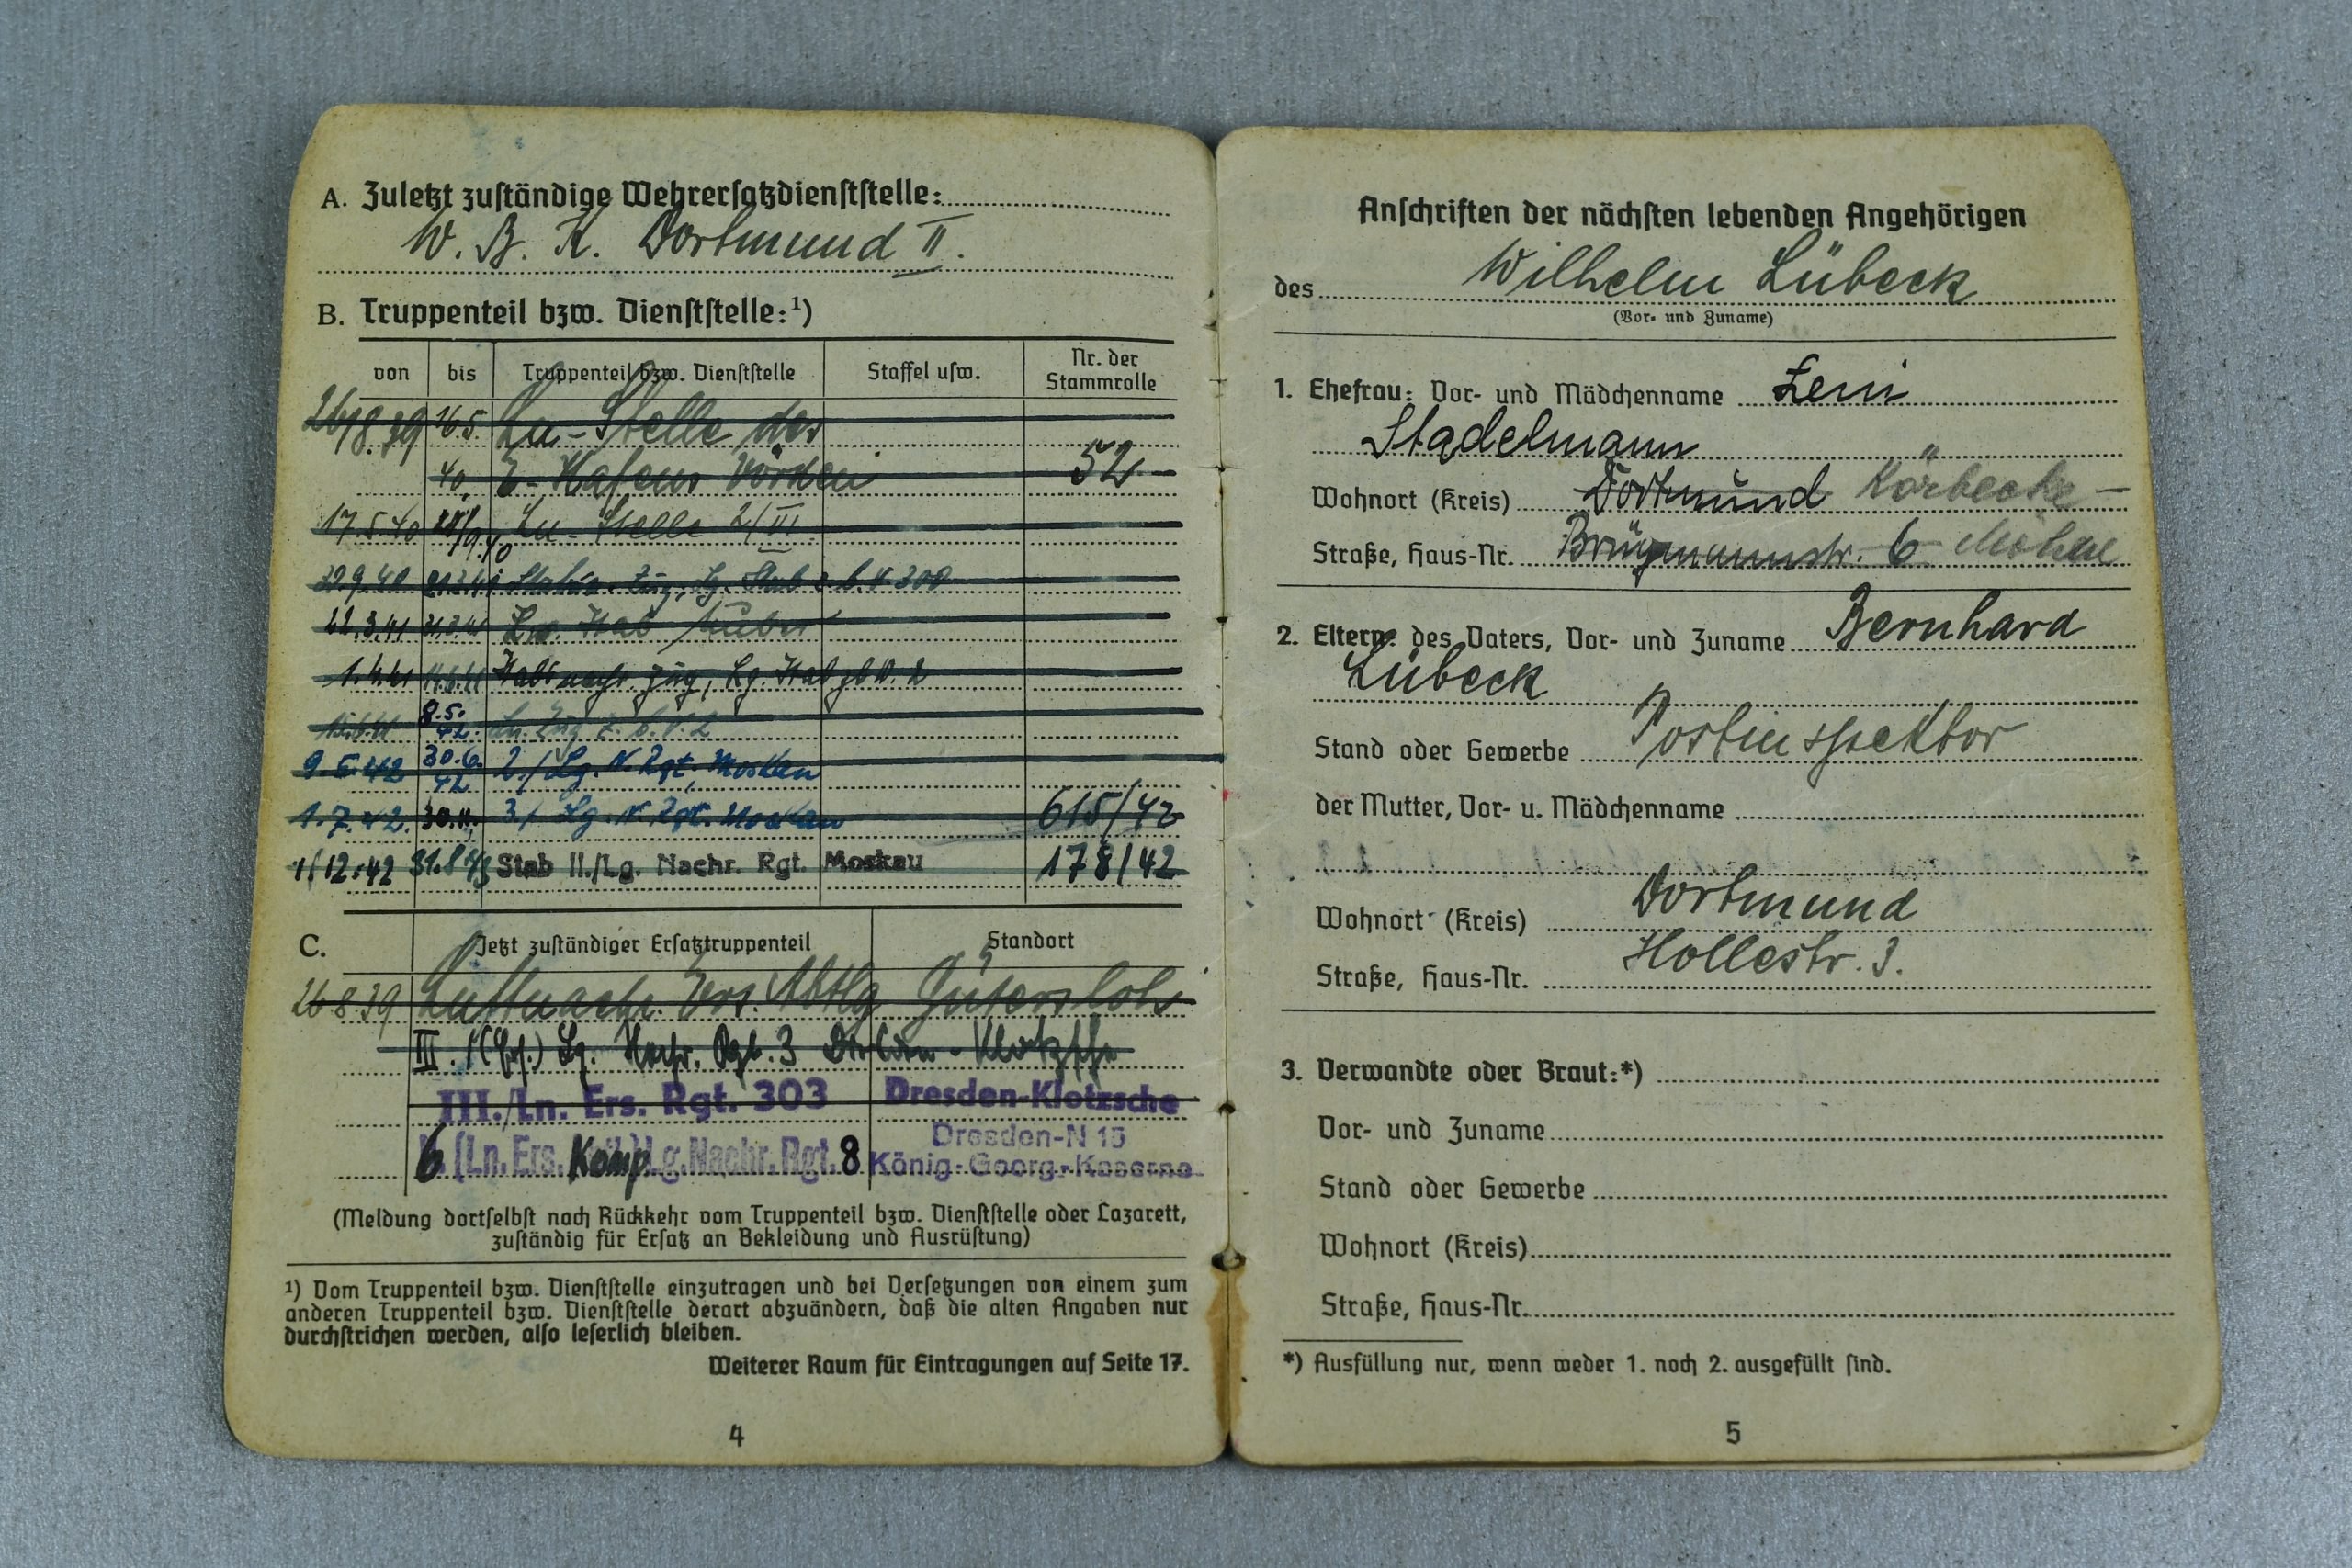 A. Zuletzt zuständige Wehrersatzdienststelle:
W. B. K. Dortmund II.
B. Truppenteil bzw. Dienststelle:¹)
von bis Truppenteil bzw. Dienststelle Staffel usw. Nr. der Stammrolle
26/8.39 16.5. Ln-Stelle des
40. E-Hafens Vörden 52
17.5.40 Ln-Stelle 2/III
21.3.41 z.b.V. 300
22.3.41
1.4.41
8.5.42 Ln. Zug z.b.V. 2
9.5.42 30.6.42 2./Lg. N. Rgt. Moskau
1.7.42. 30.11. 3./Lg. N. Rgt. Moskau 615/42
1/12.42 31.8.43 Stab II./Lg. Nachr. Rgt. Moskau 178/42
C. Jetzt zuständiger Ersatztruppenteil Standort
26.8.39 Luftnachr. Ers. Abtlg Gütersloh
III. Lg. Nachr. Rgt. 3 Dresden-Klotzsche
III./Ln. Ers. Rgt. 303 Dresden-Klotzsche
6./Ln. Ers. Komp. Lg. Nachr. Rgt. 8 Dresden-N 15
König-Georg-Kaserne
(Meldung dortselbst nach Rückkehr vom Truppenteil bzw. Dienststelle oder Lazarett,
zuständig für Ersatz an Bekleidung und Ausrüstung)
¹) Vom Truppenteil bzw. Dienststelle einzutragen und bei Versetzungen von einem zum
anderen Truppenteil bzw. Dienststelle derart abzuändern, daß die alten Angaben nur
durchstrichen werden, also leserlich bleiben.
Weiterer Raum für Eintragungen auf Seite 17.
4
Anschriften der nächsten lebenden Angehörigen
des Wilhelm Lübeck
(Vor- und Zuname)
1. Ehefrau: Vor- und Mädchenname Leni
Stadelmann
Wohnort (Kreis) Dortmund Körbecke-
Straße, Haus-Nr. Brügmannstr. 6 Möhne
2. Eltern: des Vaters, Vor- und Zuname Bernhard
Lübeck
Stand oder Gewerbe Postinspektor
der Mutter, Vor- u. Mädchenname
Wohnort (Kreis) Dortmund
Straße, Haus-Nr. Hollestr. 3.
3. Verwandte oder Braut:*)
Vor- und Zuname
Stand oder Gewerbe
Wohnort (Kreis)
Straße, Haus-Nr.
*) Ausfüllung nur, wenn weder 1. noch 2. ausgefüllt sind.
5